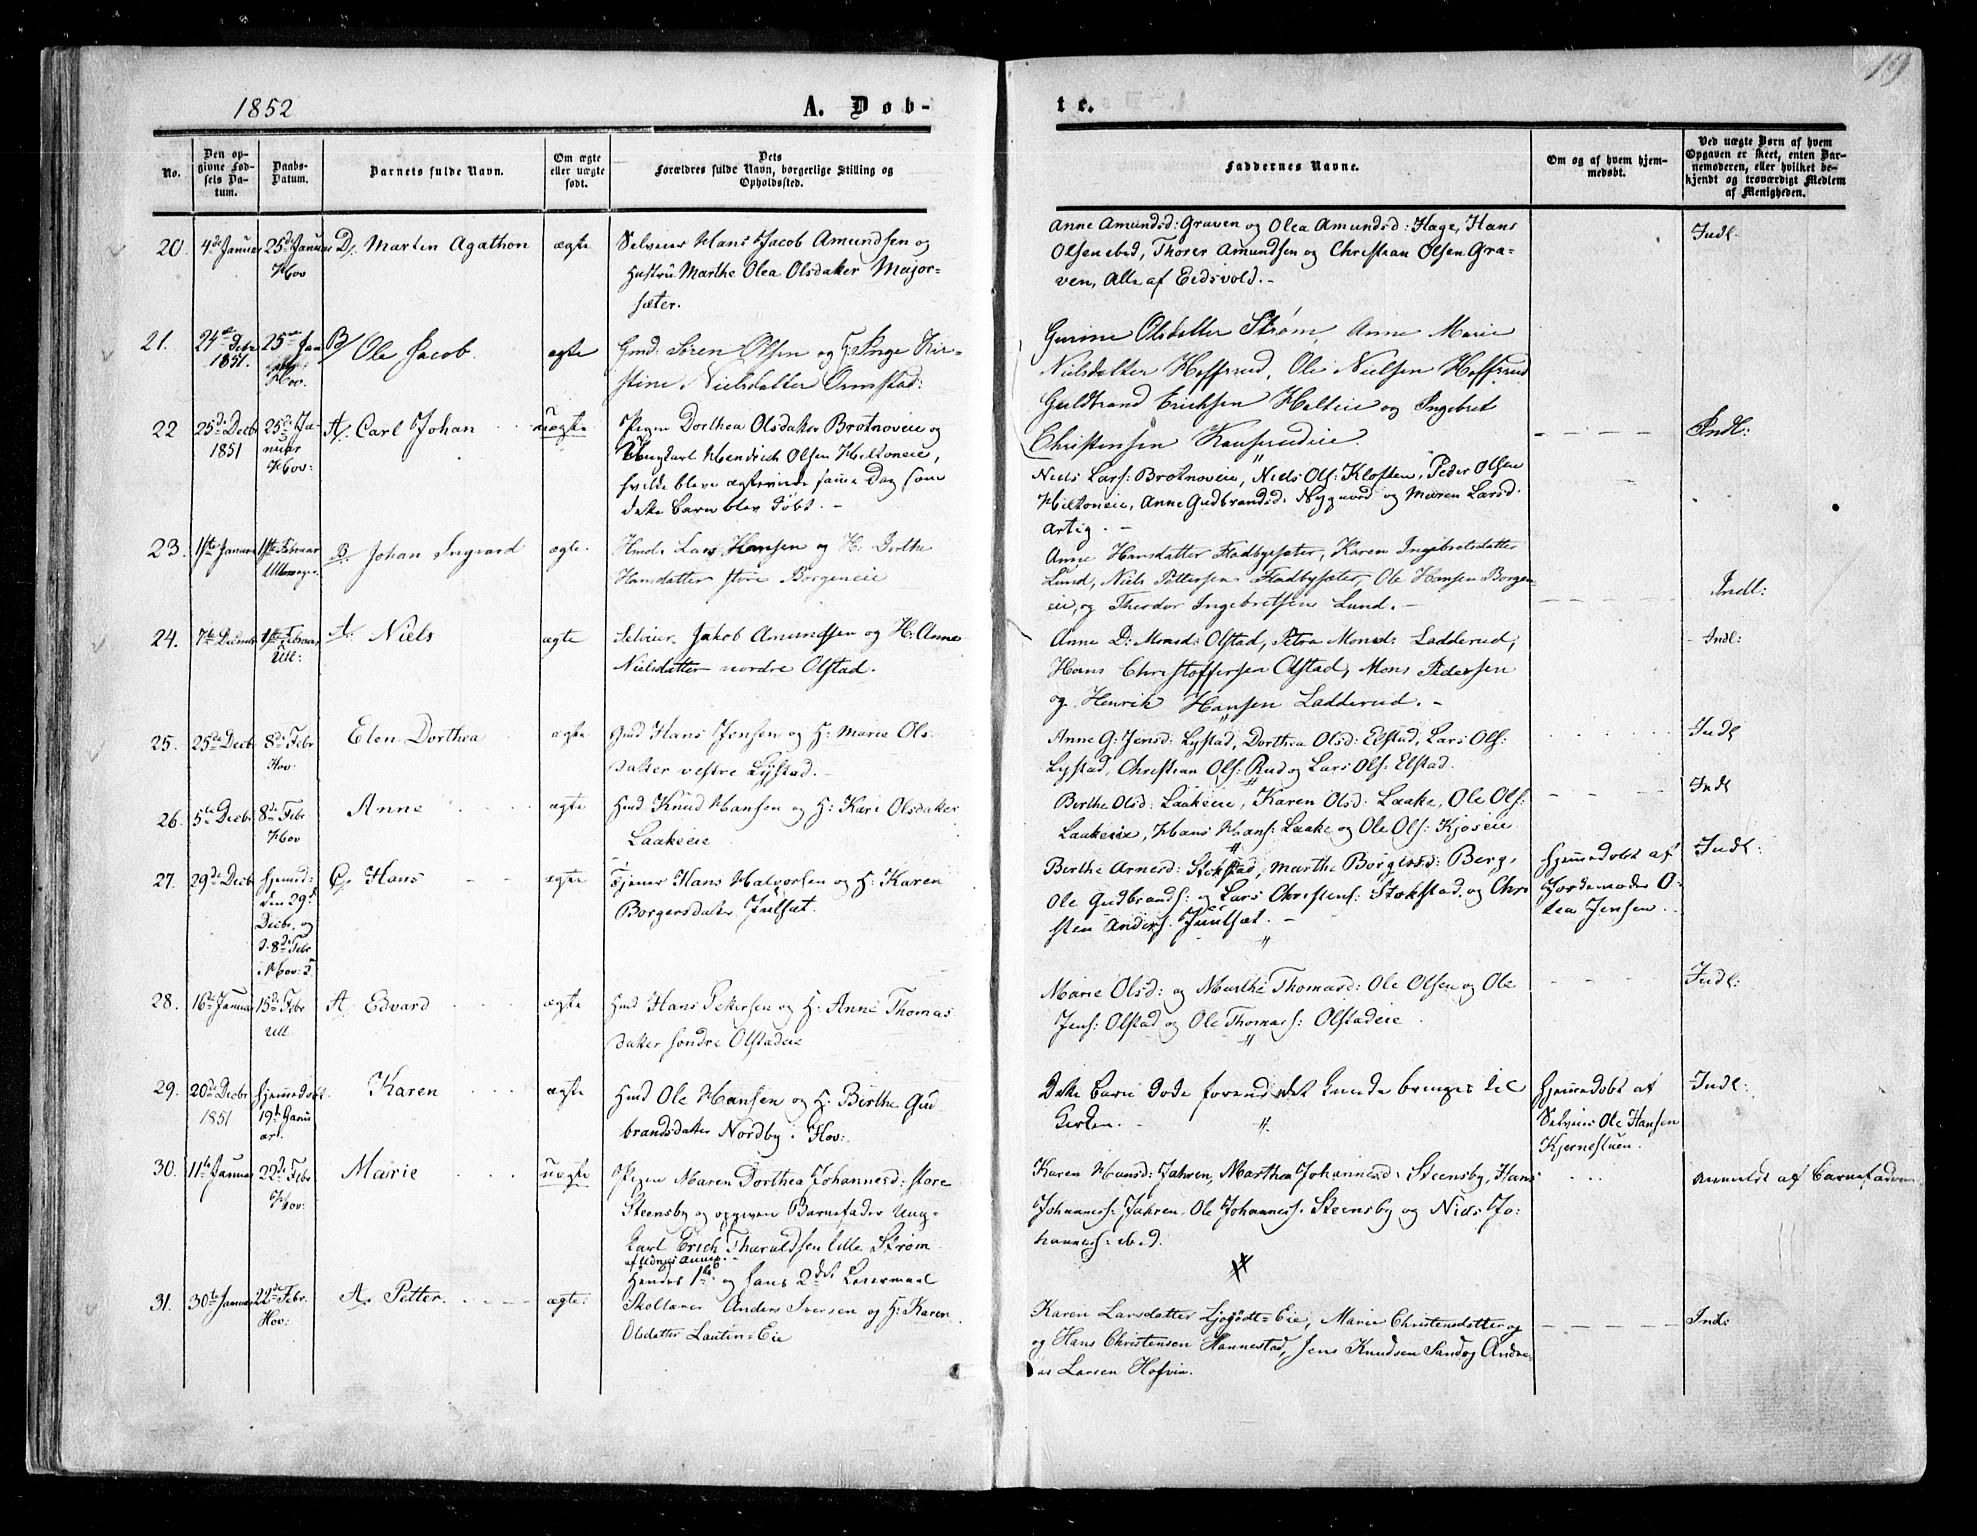 19
1852
A. Døb-
te.
No.
Den op-
givne Fød-
sels Da-
tum.
Daabs-
Datum.
Barnets fulde Navn.
Om ægte
eller uægte
født.
Dets
Forældres fulde Navn, borgerlige Stilling og
Opholdssted.
Faddernes Navne.
Om og af hvem hjem-
medøbt.
Ved uægte Børn af hvem
Opgaven er skeet, enten Bar-
nemoderen, eller hvilket be-
kjendt og troværdigt Medlem
af Menigheden.
20. 4de Januar 25de Januar D. Martin Agathon ægte
Hov
Selveier Hans Jacob Amundsen og
Hustru Marthe Olea Olsdatter Major-
sæter.
Anne Amundsd: Graven og Olea Amundsd: Hage, Hans
Olsen ibed, Thorer Amundsen og Christian Olsen Gra-
ven, Alle af Eidsvold. -
Indl:
21. 24de Decbr 25de Jan B/ Ole Jacob. ægte
1851.
Hov.
Gmd: Søren Olsen og H: Inge Kir-
stine Nielsdatter Ormstad:
Gurine Olsdatter Strøm, Anne Marie
Nielsdatter Hoffsrud, Ole Nielsen Hoffsrud
Guldbrand Erichsen Holteie og Ingebret
Christensen
22 25de Decbr 25de Ja- A/. Carl Johan uægte
1851
nuar
Hov:
Pigen Dorthea Olsdatter Brotnoveie og
Ungkarl Hendrich Olsen Hiltoneie,
hvilke bleve ægteviede samme Dag som
dette Barn blev Døbt. -
Niels Lars: Brotnoveie, Niels Ols: Kloften, Peder Olsen
Hiltoneie, Anne Gudbrandsd. Nygaard og Maren Larsd.
Artig. -
Indl:
23. 1ste Januar 1ste Februar B. Johan Ingvard ægte.
Hmd: Lars Hansen og H: Dorthe
Hansdatter store Borgeneie
Anne Hansdatter Fladbysæter, Karen Ingebretsdatter
Lund, Niels Pettersen Fladbysæter, Ole Hansen Borgen-
eie, og Theodor Ingebretsen Lund. -
Indl:
24. 7de Decmbr 1ste Febuar A. Niels ægte
Ull:
Selveier Jakob Amundsen og H: Anne
Nielsdatter nordre Olstad.
Anne D: Monsd: Olstad, Petra Monsd: Ladderud,
Hans Christoffersen Olstad, Mons Pedersen
og Henrik Hansen Ladderud. -
Indl:
25. 25de Decbr 8de Febr Elen Dorthea ægte
Hov:
Gmd Hans Jensen og H: Marie Ols-
datter vestre Lystad.
Anne G: Jensd: Lystad, Dorthea Olsd: Elstad, Lars Ols:
Lystad, Christian Ols: Rud og Lars Ols: Elstad.
Indl
26. 5te Decbr 8de Febr Anne ægte
Hov
Hmd Knud Hansen og H: Kari Olsdatter
Laakeeie
Berthe Olsd: Laakeie, Karen Olsd: Laake, Ole Ols:
Laakeeie, Hans Hans: Laake og Ole Ols: Kjoseie
Indl
27. 29de Decbr Hjemd: C. Hans ægte
den 29de
Decbr. og
d. 8de Febr
i Hov:
Tjener Hans Halvorsen og H: Karen
Borgersdatter Julsæt.
Berthe Arnesd: Stokstad, Marthe Borgersd: Berg,
Ole Gudbrands: og Lars Christens: Stokstad, og Chri
sten Anders: Juulsæt. -
Hjemmedøbt af
Jordemoder O-
lea Jensen.
Indl:
28. 16de Januar 15de Febr A. Edvard ægte
Ull
Hmd Hans Pettersen og H: Anne Thomas
datter søndre Olstadeie
Marie Olsd: og Marthe Thomasd: Ole Olsen og Ole
Jens: Olstad og Ole Thomas: Olstadeie.
Indl:
29. 20de Decbr Hjemmedøbt Karen ægte
1851
19de Janu
ar.
Hmd Ole Hansen og H: Birthe Gud
brandsdatter Nordby i Hov:
Dette Barn døde forend det kunde bringes til
Kirken.
Hjemmedøbt af
Selveier Ole Hansen
Kjernestuen.
Indl:
30. 11te Januar 22de Febr Marie uægte
Hov:
Pigen Maren Dorthea Johannesd: store
Steensby og opgiven Barnefader Ung-
karl Erich Tharaldsen lille Strøm.
af Udnæs Annex.
Hendes 1ste og hans 2det Leiermaal
Karen Hansd: Jahren, Marthea Johannesd: Steensby, Hans
Johannes: Jahren, Ole Johannes: Steensby og Niels Jo-
hannes: ibd.
Anmeldt af Barnefaderen
31. 30te Januar 22de Febr. A. Petter. ægte.
Hov:
Skollærer Anders Iversen og H: Karen
Olsdatter Lautin=Eie
Karen Larsdatter Ljøgodt=Eie, Marie Christensdatter og
og Hans Christensen Hannestad, Jens Knudsen Sand og Andre-
as Larsen Hofvin.
Ind: